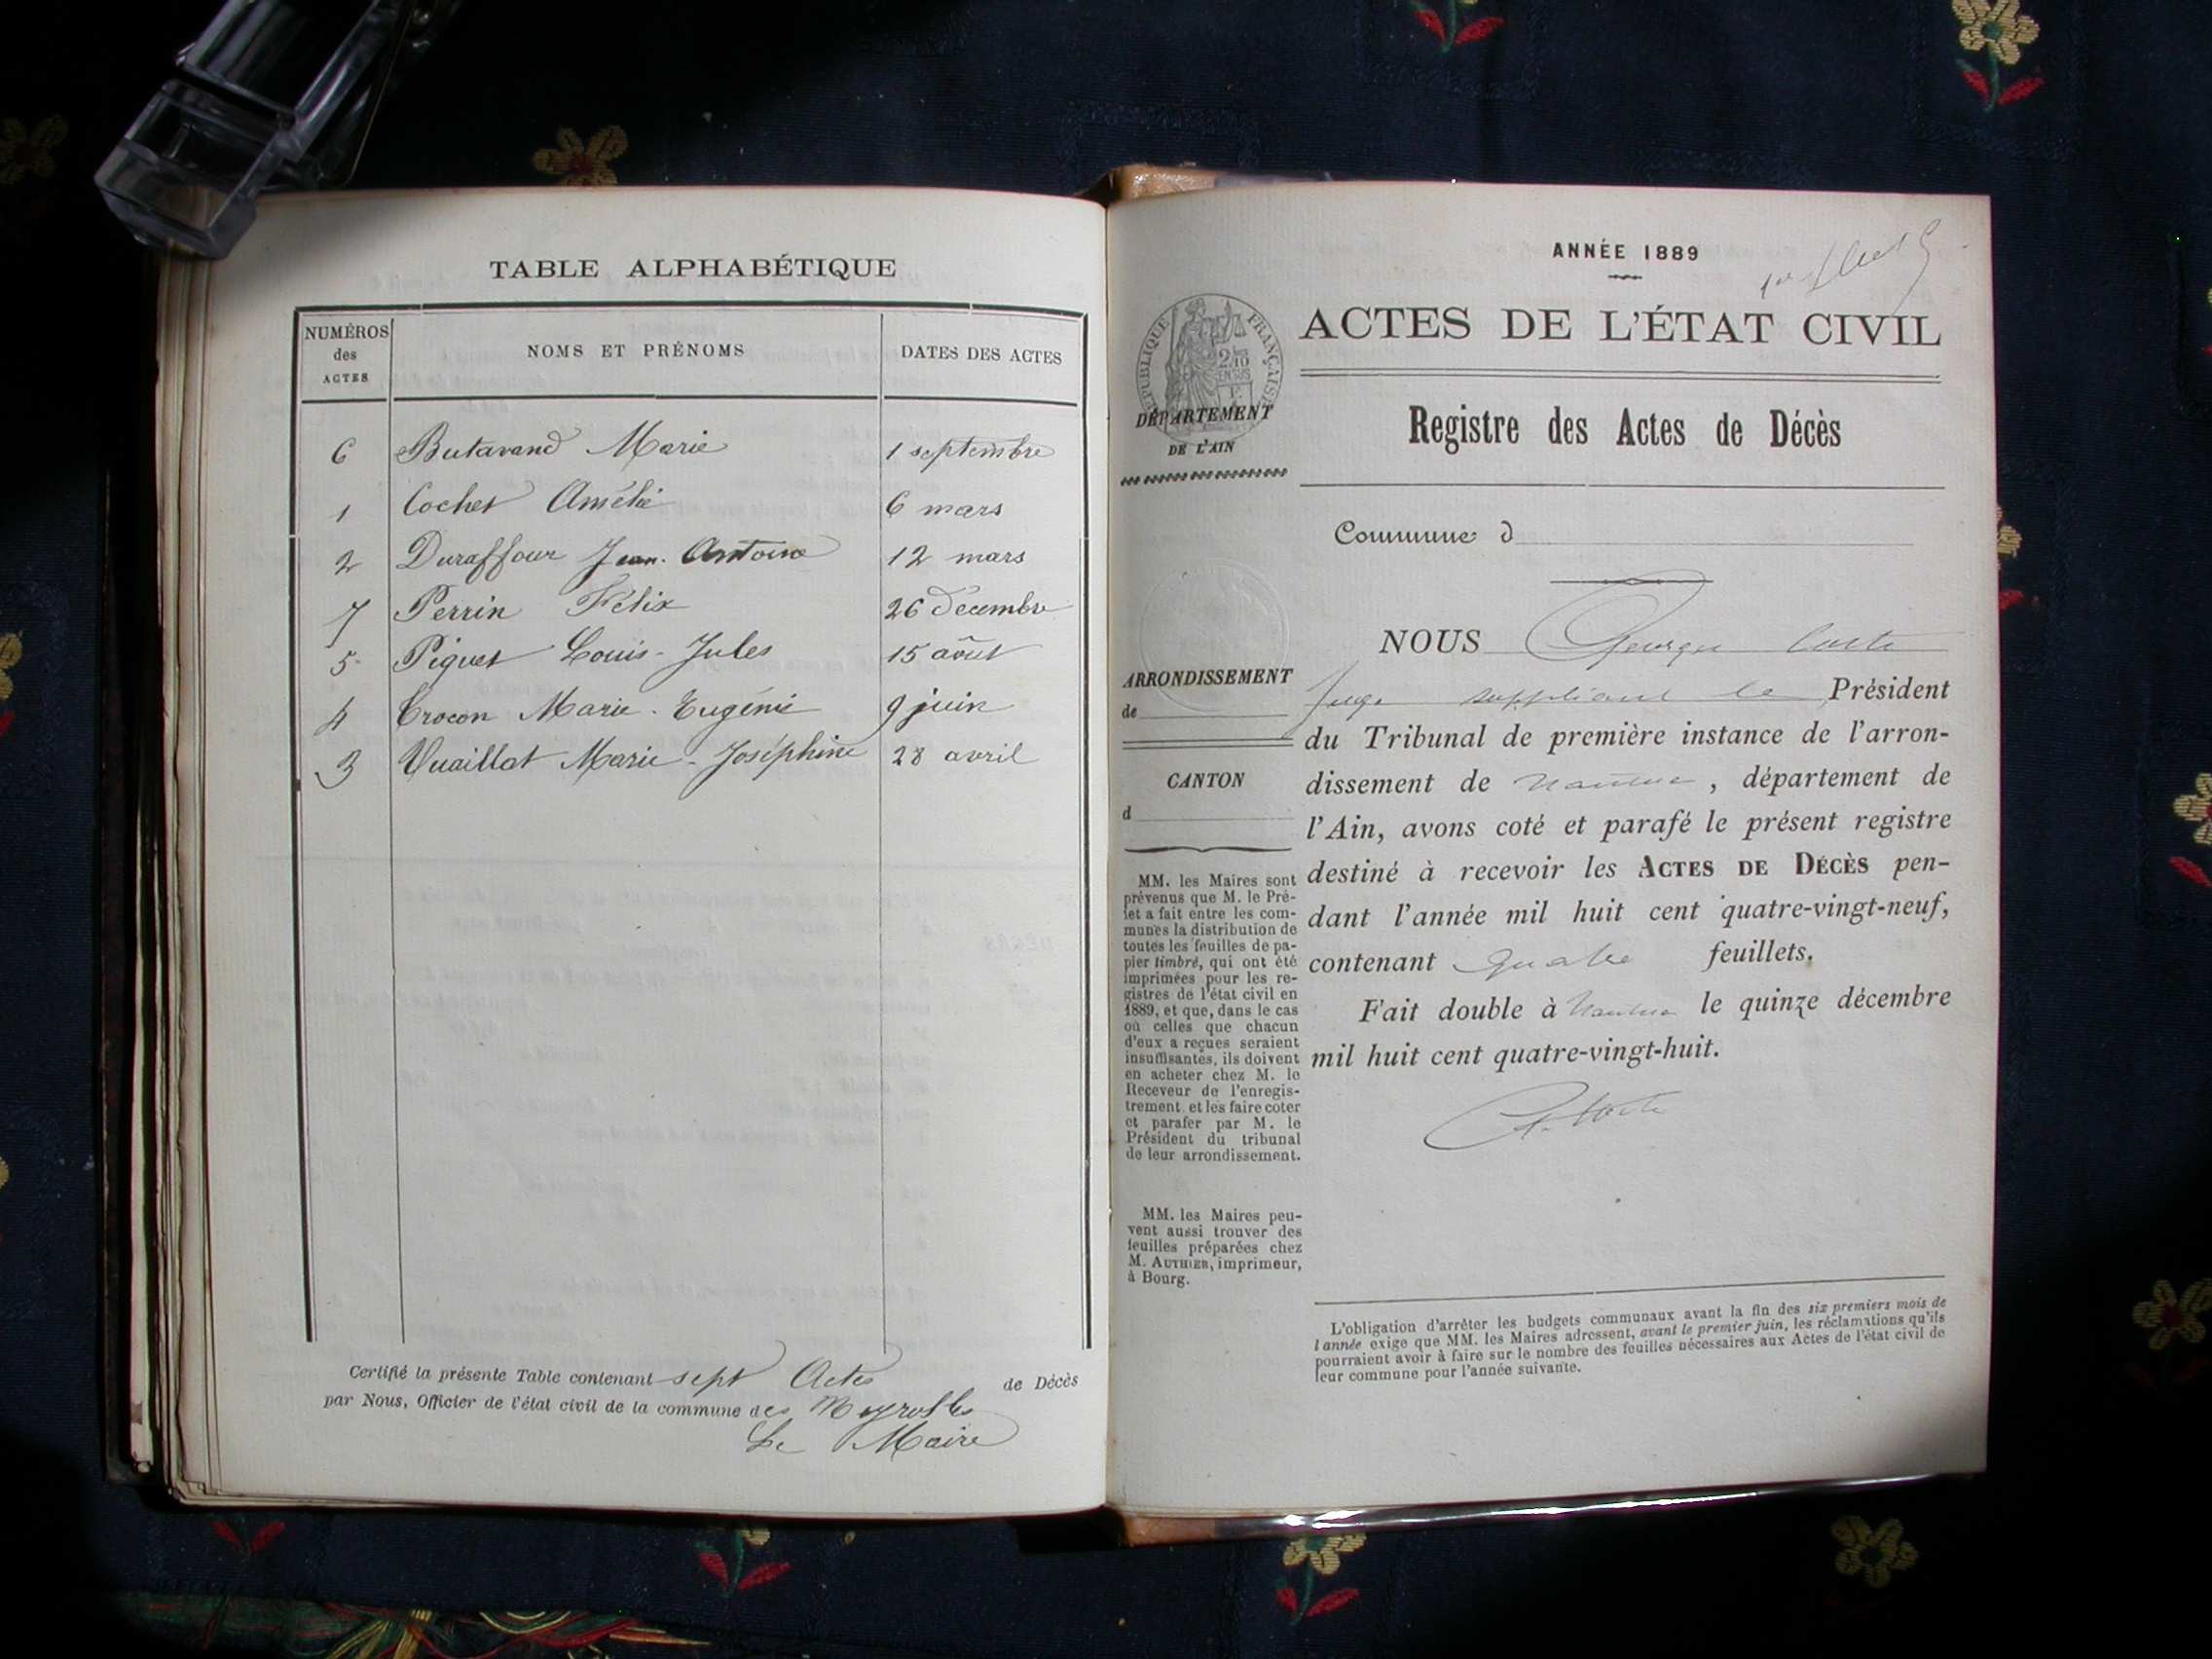 TABLE ALPHABÉTIQUE
NUMÉROS des ACTES NOMS ET PRÉNOMS DATES DES ACTES
6 Butavand Marie 1 septembre
1 Cochet Amélie 6 mars
2 Duraffour Jean-Antoine 12 mars
7 Perrin Félix 26 décembre
5 Piquet Louis-Jules 15 août
4 Crocon Marie-Eugénie 9 juin
3 Vuaillat Marie-Joséphine 28 avril
Certifié la présente Table contenant sept Actes de Décès
par Nous, Officier de l'état civil de la commune des Neyrolles
Le Maire
ANNÉE 1889
ACTES DE L'ÉTAT CIVIL
RÉPUBLIQUE FRANÇAISE
DÉPARTEMENT
DE L'AIN
Registre des Actes de Décès
Commune d
ARRONDISSEMENT
de
CANTON
d
MM. les Maires sont
prévenus que M. le Pré-
fet a fait entre les com-
munes la distribution de
toutes les feuilles de pa-
pier timbré, qui ont été
imprimées pour les re-
gistres de l'état civil en
1889, et que, dans le cas
où celles que chacun
d'eux a reçues seraient
insuffisantes, ils doivent
en acheter chez M. le
Receveur de l'enregis-
trement et les faire coter
et parafer par M. le
Président du tribunal
de leur arrondissement.
MM. les Maires peu-
vent aussi trouver des
feuilles préparées chez
M. AUTHIER, imprimeur,
à Bourg.
NOUS Georges
Juge suppléant le Président
du Tribunal de première instance de l'arron-
dissement de Nantua, département de
l'Ain, avons coté et parafé le présent registre
destiné à recevoir les ACTES DE DÉCÈS pen-
dant l'année mil huit cent quatre-vingt-neuf,
contenant quatre feuillets.
Fait double à Nantua le quinze décembre
mil huit cent quatre-vingt-huit.
L'obligation d'arrêter les budgets communaux avant la fin des six premiers mois de
l'année exige que MM. les Maires adressent, avant le premier juin, les réclamations qu'ils
pourraient avoir à faire sur le nombre des feuilles nécessaires aux Actes de l'état civil de
leur commune pour l'année suivante.